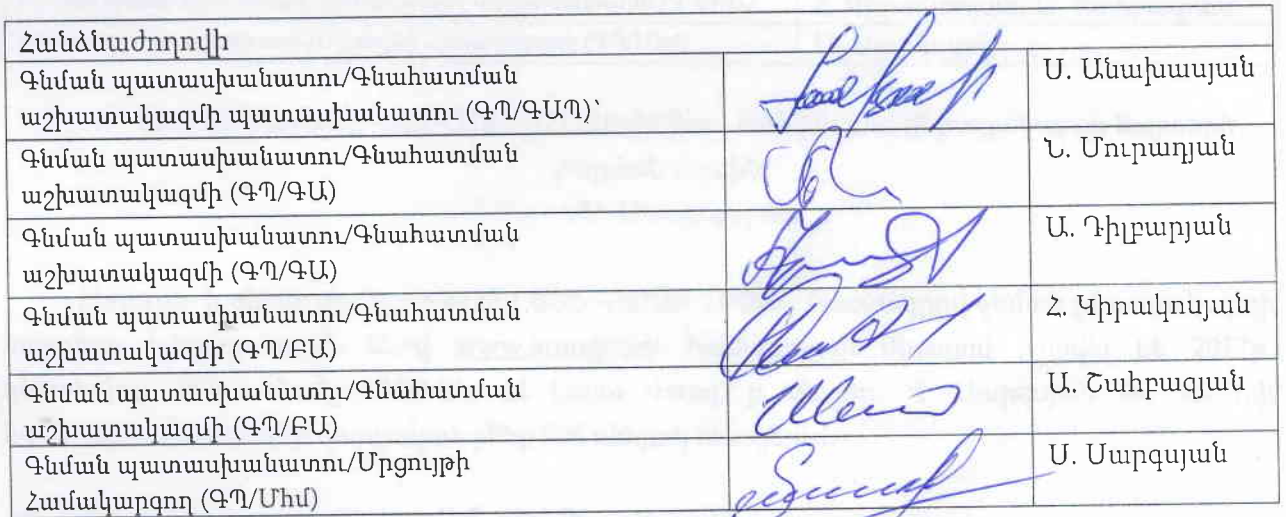 Հանձնաժողովի
Գնման պատասխանատու/Գնահատման
աշխատակազմի պատասխանատու (ԳՊ/ԳԱՊ)՝
Ս. Անախասյան
Գնման պատասխանատու/Գնահատման
աշխատակազմի (ԳՊ/ԳԱ)
Ն. Մուրադյան
Գնման պատասխանատու/Գնահատման
աշխատակազմի (ԳՊ/ԳԱ)
Ա. Դիլբարյան
Գնման պատասխանատու/Գնահատման
աշխատակազմի (ԳՊ/ԲԱ)
Հ. Կիրակոսյան
Գնման պատասխանատու/Գնահատման
աշխատակազմի (ԳՊ/ԲԱ)
Ա. Շահբազյան
Գնման պատասխանատու/Մրցույթի
Համակարգող (ԳՊ/Միմ)
Ս. Սարգսյան